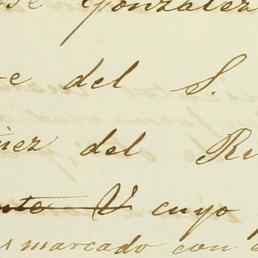 se Gonzalez
e del S.
ñez del Ri
nte V cuyo
marcado con